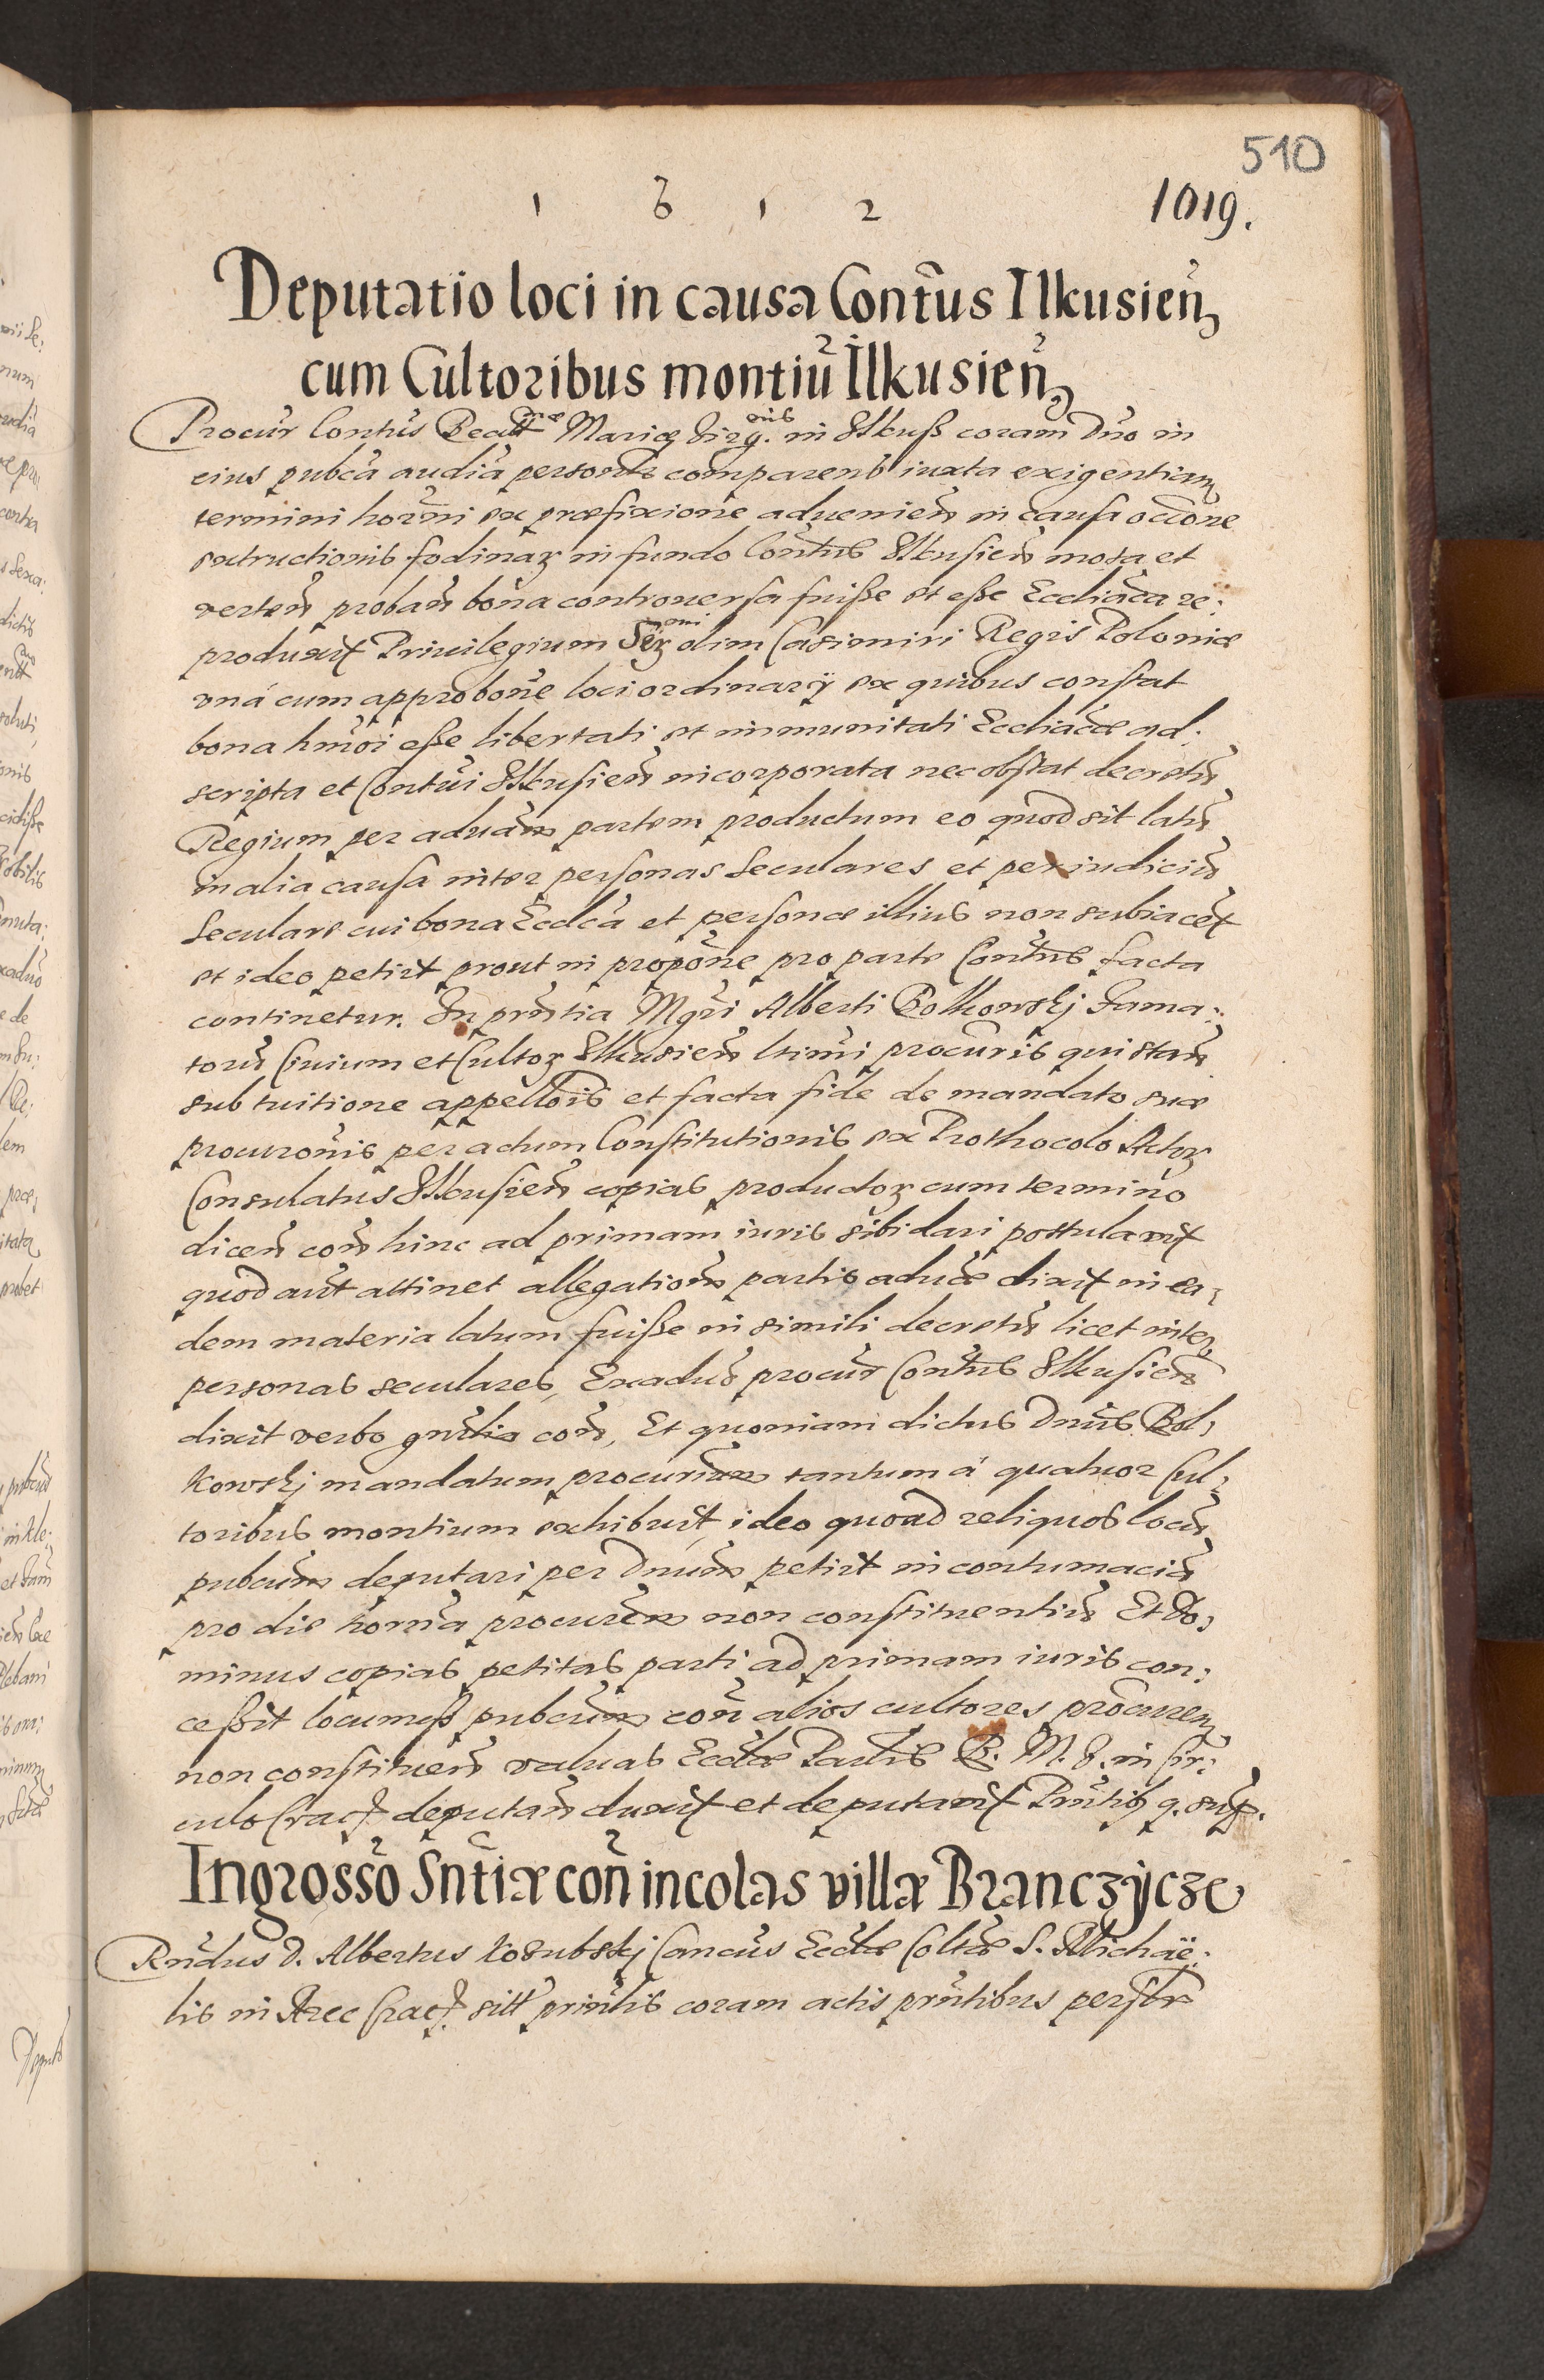 510
1 6 1 2
1019.
Deputatio loci in causa Contus Ilkusien̄
cum Cultoribus montiū Ilkusien̄
Procur Contus Beattmae Mariæ Virg.inis in Ilkuß coram Dno in
eius pubca audia personlr comparens iuxta exigentiam
termini horni ex præfixione aduenien in causa occone
extructionis fodinar in fundo Contus Ilkusien mota et
verten proban bona controuersa fuiße et eße Eccliaca re:
produxit Priuilegium Ser.mi olim Casimiri Regis Poloniæ
vná cum approbone loci ordinarÿ ex quibus constat
bona hmoi eße libertati et immunitati Eccliacæ ad:
scripta et Contui Ilkusien incorporata nec obstat decretū
Regium per aduam partem productum eo quod sit latū
in alia causa inter personas seculares et per iudiciū
seculare cui bona Ecclca et personæ illius non subiacet
et ideo petiit prout in propone pro parte Contus facta
continetur. In prntia Mgri Alberti Bolkowskj Fama:
torū Ciuium et Cultor Ilkusien ltimi procuris qui stan
sub tuitione appellois et facta fide de mandato suæ
procuronis per actum Constitutionis ex Prothocolo Actor
Consulatus Ilkusien copias productor cum termino
dicen con hinc ad primam iuris sibi dari postulauit
quod aut attinet allegationem partis aduæ dixit in ea,
dem materia latum fuiße in simili decretū licet inter
personas seculares, Exaduo procur Contus Ilkusien
dixit verbo gnlia con, Et quoniam dictus Dnus Bol,
kowskj mandatum procurium tantum á quatuor Cul,
toribus montium exhibuit, ideo quoad reliquos locū
pubcum deputari per Dnum petiit in contumaciā
pro die horna procurem non constituentiū Et Do,
minus copias petitas parti ad primam iuris con:
ceßit locumq pubcum con alios cultores procurem
non constituen valuas Ecclæ Partis B. M. V. in Cir:
culo Crac deputan duxit et deputauit Prntibq q. sup.
Ingrosso Sntiæ con incolas villæ Branczÿcze
Rndus D. Albertus Kosubskj Cancus Ecclæ Coltæ S. Michaë:
lis in Arce Crac sitt prinlis coram actis prntibus perslr